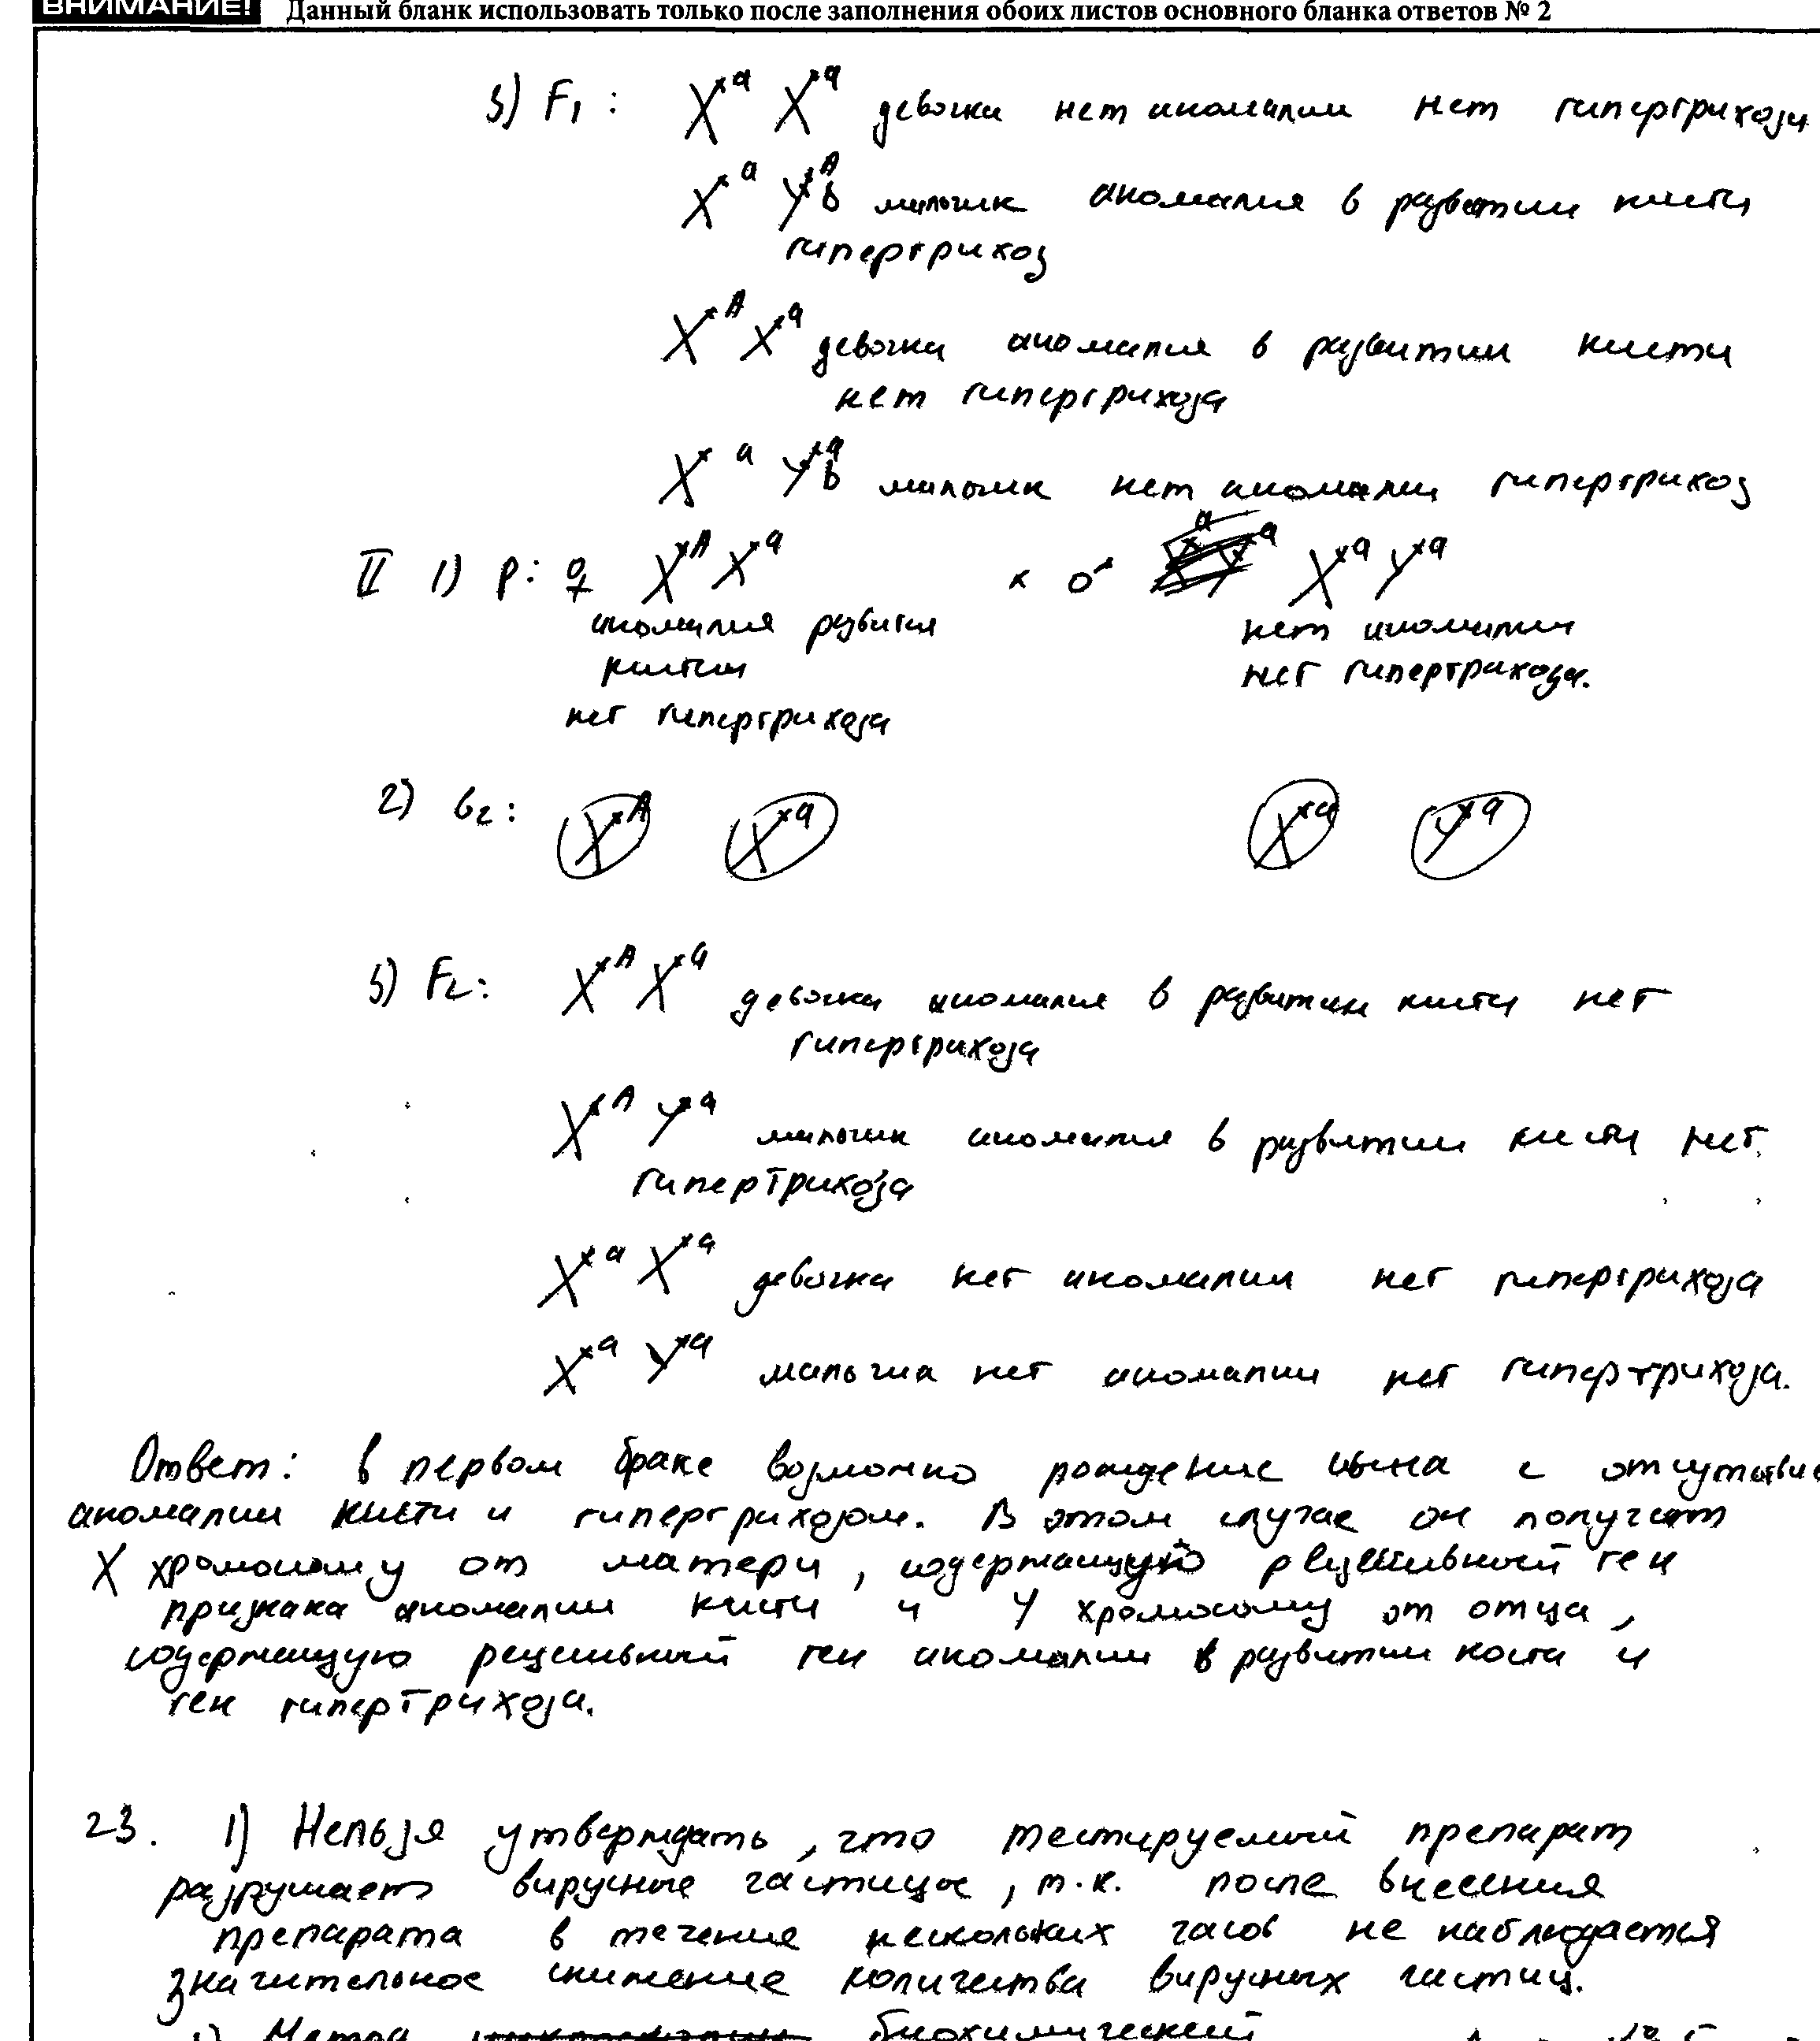 ВНИМАНИЕ! Данный бланк использовать только после заполнения обоих листов основного бланка ответов № 2
3) F₁ : Xᵃ Xᵃ девочка нет аномалии нет гипертрихоза
Xᵃ Yᴬb мальчик аномалия в развитии кисти
гипертрихоз
Xᴬ Xᵃ девочка аномалия в развитии кисти
нет гипертрихоза
Xᵃ Yᵃb мальчик нет аномалии гипертрихоз
II 1) P: ♀ Xᴬ Xᵃ × ♂ Xᵃ Yᵃ
аномалия развития нет аномалии
кисти нет гипертрихоза.
нет гипертрихоза
2) G₂: Xᴬ Xᵃ Xᵃ Yᵃ
3) F₂: Xᴬ Xᵃ девочка аномалия в развитии кисти нет
гипертрихоза
Xᴬ Yᵃ мальчик аномалия в развитии кисти нет
гипертрихоза
Xᵃ Xᵃ девочка нет аномалии нет гипертрихоза
Xᵃ Yᵃ нет аномалии нет гипертрихоза.
Ответ: в первом браке возможно рождение сына с
аномалии кисти и гипертрихозом. В этом случае он получит
X хромосому от матери, содержащую рецессивный ген
признака аномалии кисти и Y хромосому от отца,
содержащую рецессивный ген аномалии в развитии кости и
ген гипертрихоза.
23. 1) Нельзя утверждать, что тестируемый препарат
разрушает вирусные частицы, т.к. после внесения
препарата в течение нескольких часов не наблюдается
значительное снижение количества вирусных частиц.
Метод биохимический